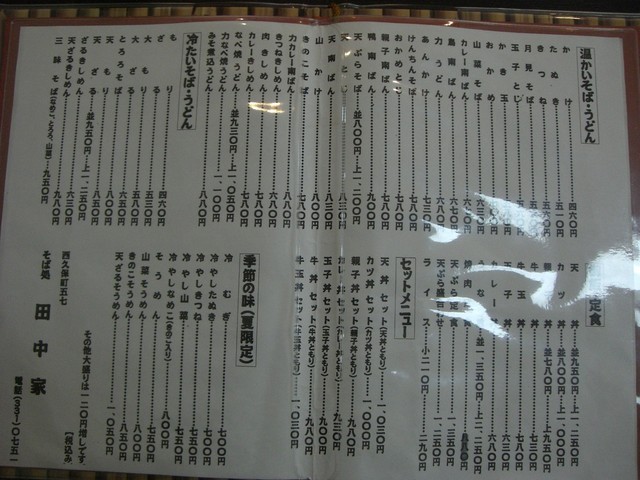 温かいそば・うどん
かけ 四六〇円
たぬき 五一〇円
きつね
月見そば
玉子とじ
かき玉
おかめ
山菜そば
カレー南ばん
鳥南ばん 六七〇円
力うどん 六八〇円
あんかけ 七三〇円
けんちんそば 七八〇円
おかめとじ 七八〇円
親子南ばん 七八〇円
鴨南ばん 九〇〇円
天ぷらそば 並八〇〇円 上一、二〇〇円
天とじ 八三〇円
天南ばん 八三〇円
山かけ 八〇〇円
きのこそば 七八〇円
力カレー南ばん 八八〇円
きつねきしめん
肉きしめん 七八〇円
カレーきしめん 七八〇円
なべ焼うどん 並九三〇円 上一、〇五〇円
力なべ焼うどん 一、一〇〇円
みそ煮込うどん 八八〇円
冷たいそば・うどん
もり 四六〇円
ざる 五三〇円
大もり
大ざる
とろろそば 六五〇円
天もり 八〇〇円
天ざる 八五〇円
ざるきしめん 並九五〇円 上一、二五〇円
天ざるきしめん 六三〇円
三味そば(なめこ、とろろ、山菜) 九五〇円
定食
天丼 並九五〇円 上一、二五〇円
カツ丼 並八〇〇円 上一、〇〇〇円
牛丼 並七八〇円 上九五〇円
親子丼 七三〇円
玉子丼 六三〇円
カレー丼 六八〇円
うな丼 並一、三五〇円 上二、二五〇円
焼肉定食
天ぷら定食 一、二五〇円
天ぷら盛合せ 一、一五〇円
ライス 小二一〇円 大二九〇円
セットメニュー
天丼セット(天丼ともり) 一、〇三〇円
カツ丼セット(カツ丼ともり) 一、〇〇〇円
親子丼セット(親子丼ともり) 九八〇円
カレー丼セット(カレー丼ともり) 九三〇円
玉子丼セット(玉子丼ともり) 九〇〇円
牛丼セット(牛丼ともり) 九八〇円
牛玉丼セット(牛玉丼ともり) 一、〇三〇円
季節の味(夏限定)
冷むぎ 七〇〇円
冷やしたぬき 七〇〇円
冷やしきつね 七五〇円
冷やし山菜 七五〇円
冷やしなめこ(きのこ入り) 八〇〇円
そうめん 七五〇円
山菜そうめん 八五〇円
きのこそうめん 八五〇円
天ざるそうめん 一、〇五〇円
その他大盛りは一二〇円増しです。
(税込み)
西久保町五七
そば処 田中家
電話(33)〇七五一